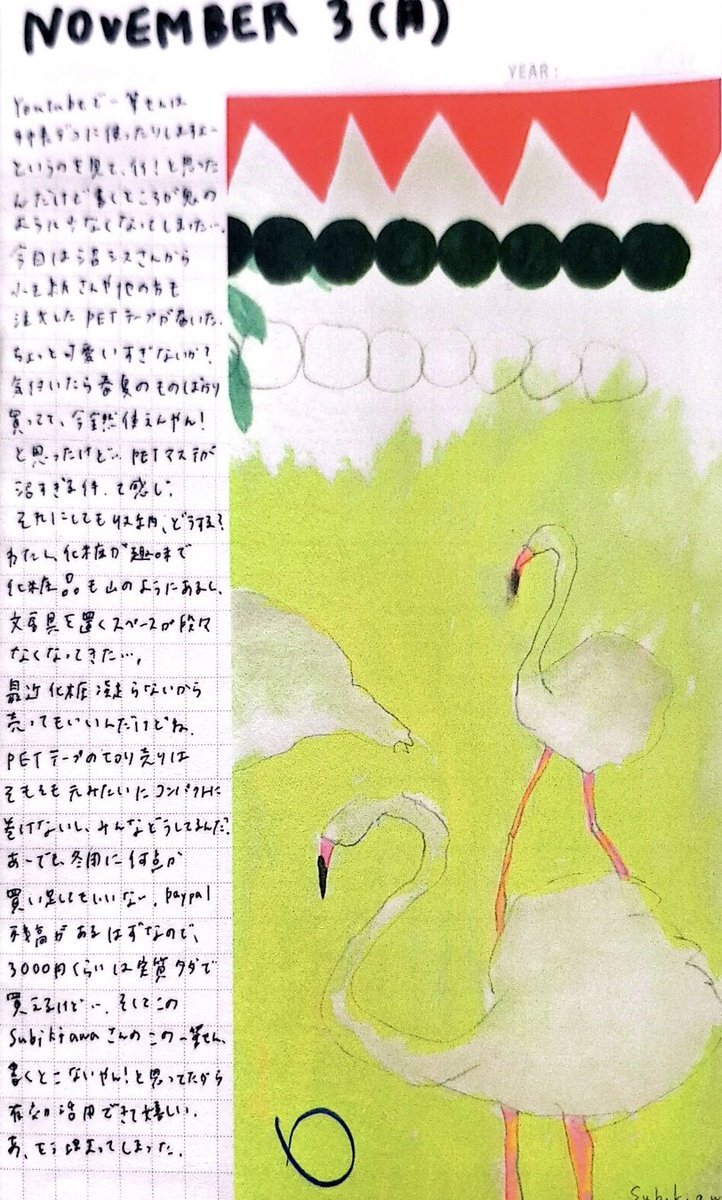 NOVEMBER 3 (月)
YEAR:
Youtubeで一筆せんは
手帳デコに使ったりしますよー
というのを見て、行!と思った
んだけど書くところが鬼の
ようになくなってしまった…。
今日は沼ミスさんから
注文したPETテープが届いた.
ちょっと可愛いすぎないか?
気付いたら春夏のものばかり
買ってて、今全然使えんやん!
と思ったけど… PETマステが
沼すぎる件.て感じ.
それにしても収納、どうする?
わたし、化粧が趣味で
化粧品も山のようにあるし、
文房具を置くスペースが段々
なくなってきた…。
最近化粧濃走らないから
売ってもいいんだけどね.
PETテープの切り売りは
そもそも元みたいにコンパクトに
巻けないし、みんなどうしてるんだ?
あーでも、冬用に何点か
買い足してもいいなー. paypal
残高があるはずなので、
3000円くらいは実質タダで
買えるけど…. そしてこの
Subikiawaさんのこの一筆せん、
書くとこないやん!と思ってたから
有効活用できて嬉しい.
あ、もう埋まってしまった.
6